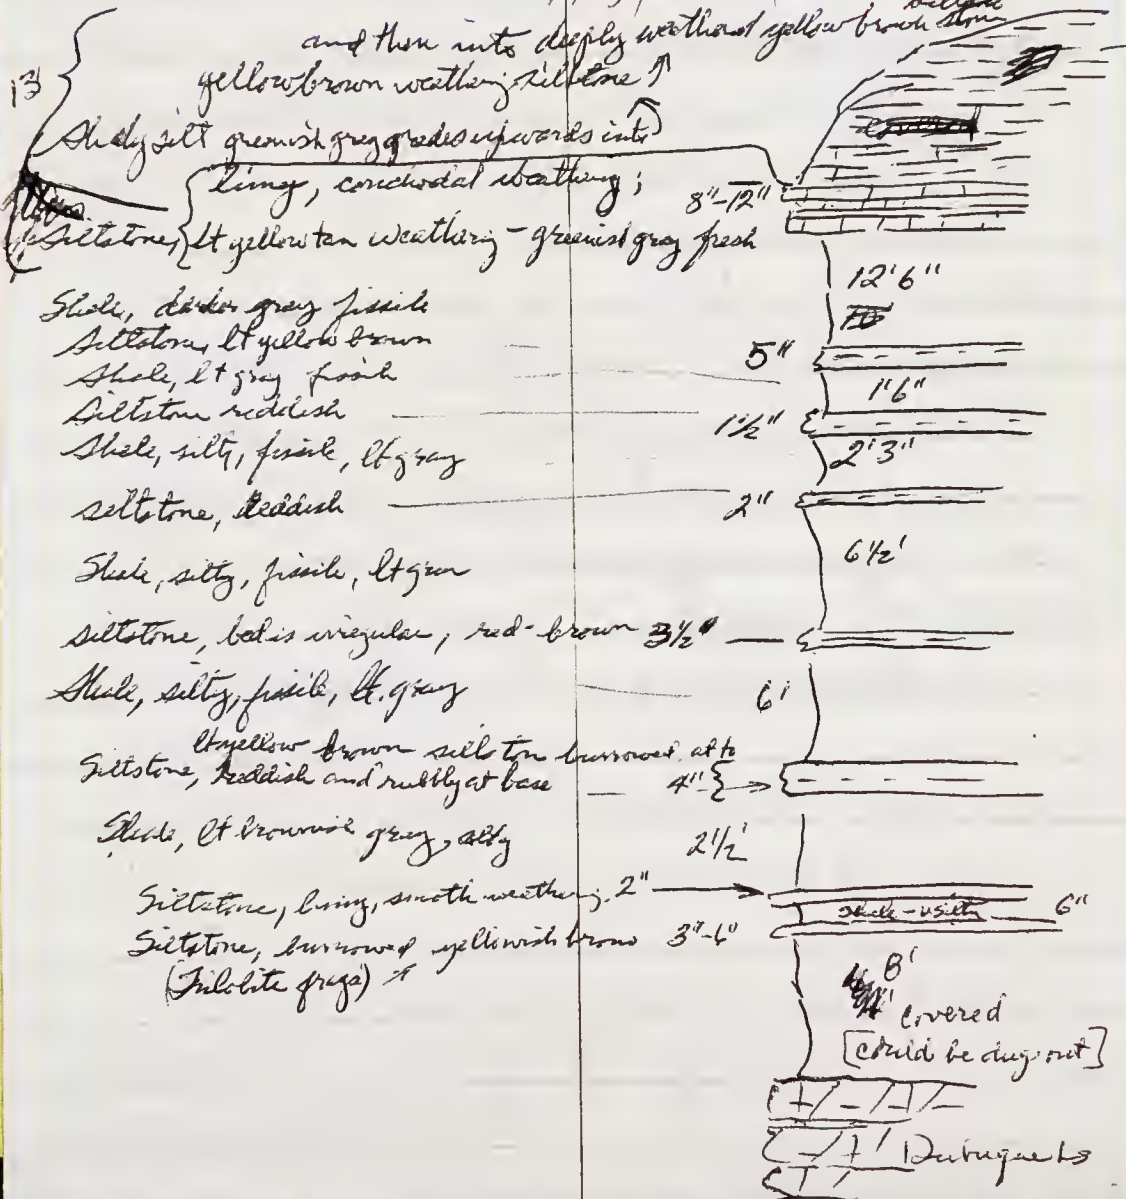 and then into deeply weathered yellow brown
yellow brown weathering siltstone ↑
13'
Shaly silt greenish gray grades upwards into
covered
limy, conchodal weathering;
8"-12"
Siltstone, lt yellow tan weathering - greenish gray fresh
12'6"
Shale, darker gray fissile
Siltstone, lt yellow brown
5"
Shale, lt gray fissile
1'6"
Siltstone reddish
1½"
Shale, silty, fissile, lt gray
2'3"
siltstone, reddish
2"
Shale, silty, fissile, lt gray
6½'
siltstone, bed is irregular, red-brown 3½"
Shale, silty, fissile, lt. gray
6'
lt yellow brown siltston burrowed at to
Siltstone, reddish and rubbly at base
4"
Shale, lt brownish gray, silty
2½'
Siltstone, limy, smooth weathering, 2"
shale - v silty 6"
Siltstone, burrowed yellowish brown 3"-6"
(Trilobite frags)
8'
covered
[could be dug out]
Dubuque Ls